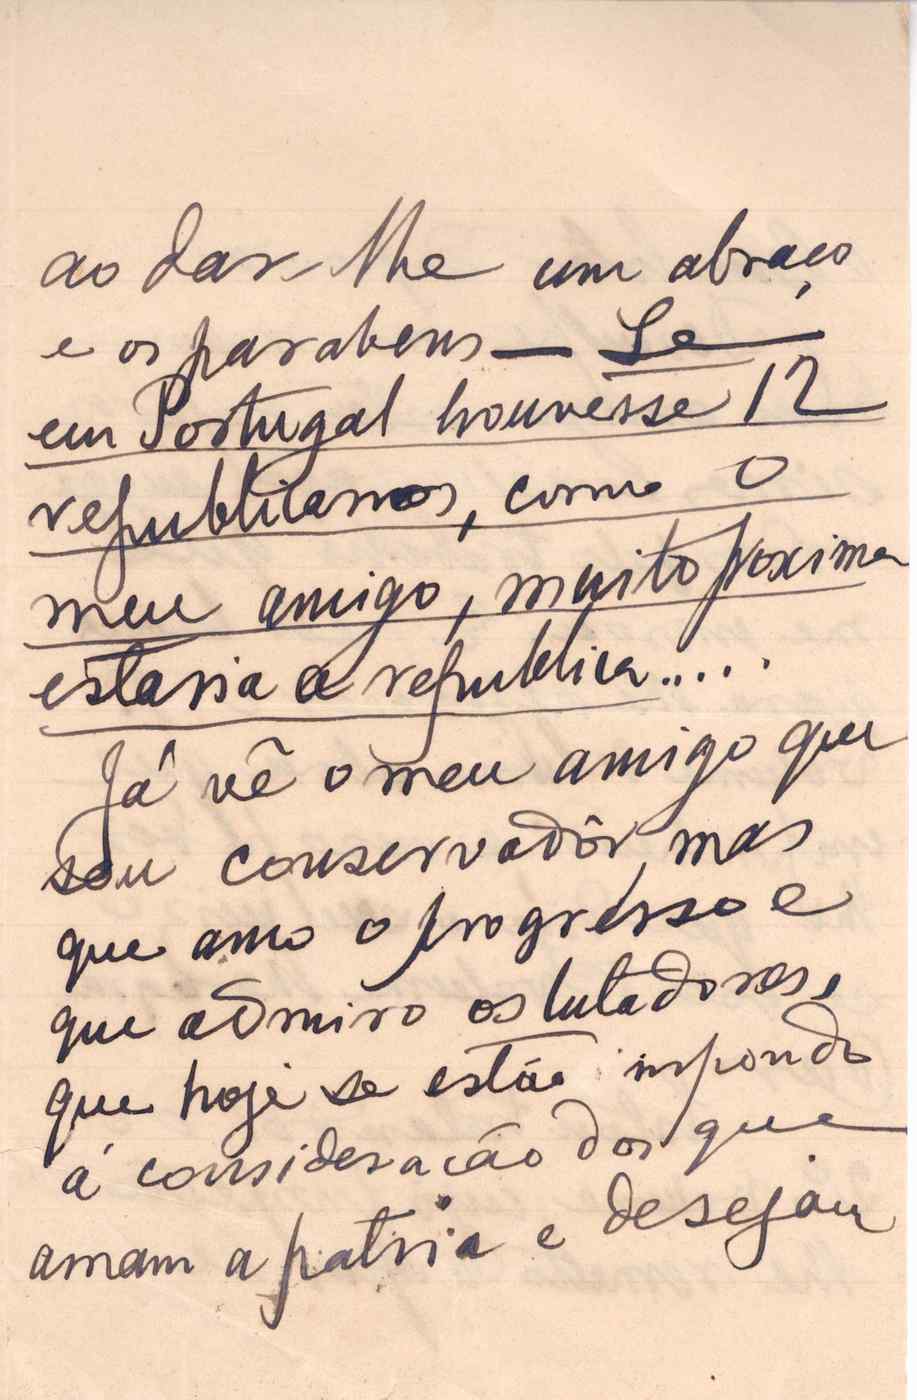 ao dar-lhe um abraço
e os parabens — Se
em Portugal houvesse 12
republicanos, como o
meu amigo, muito proxima
estaria a republica.....
Já vê o meu amigo que
sou conservadôr, mas
que amo o progresso e
que admiro os lutadores,
que hoje se estão impondo
á consideração dos que
amam a patria e desejam